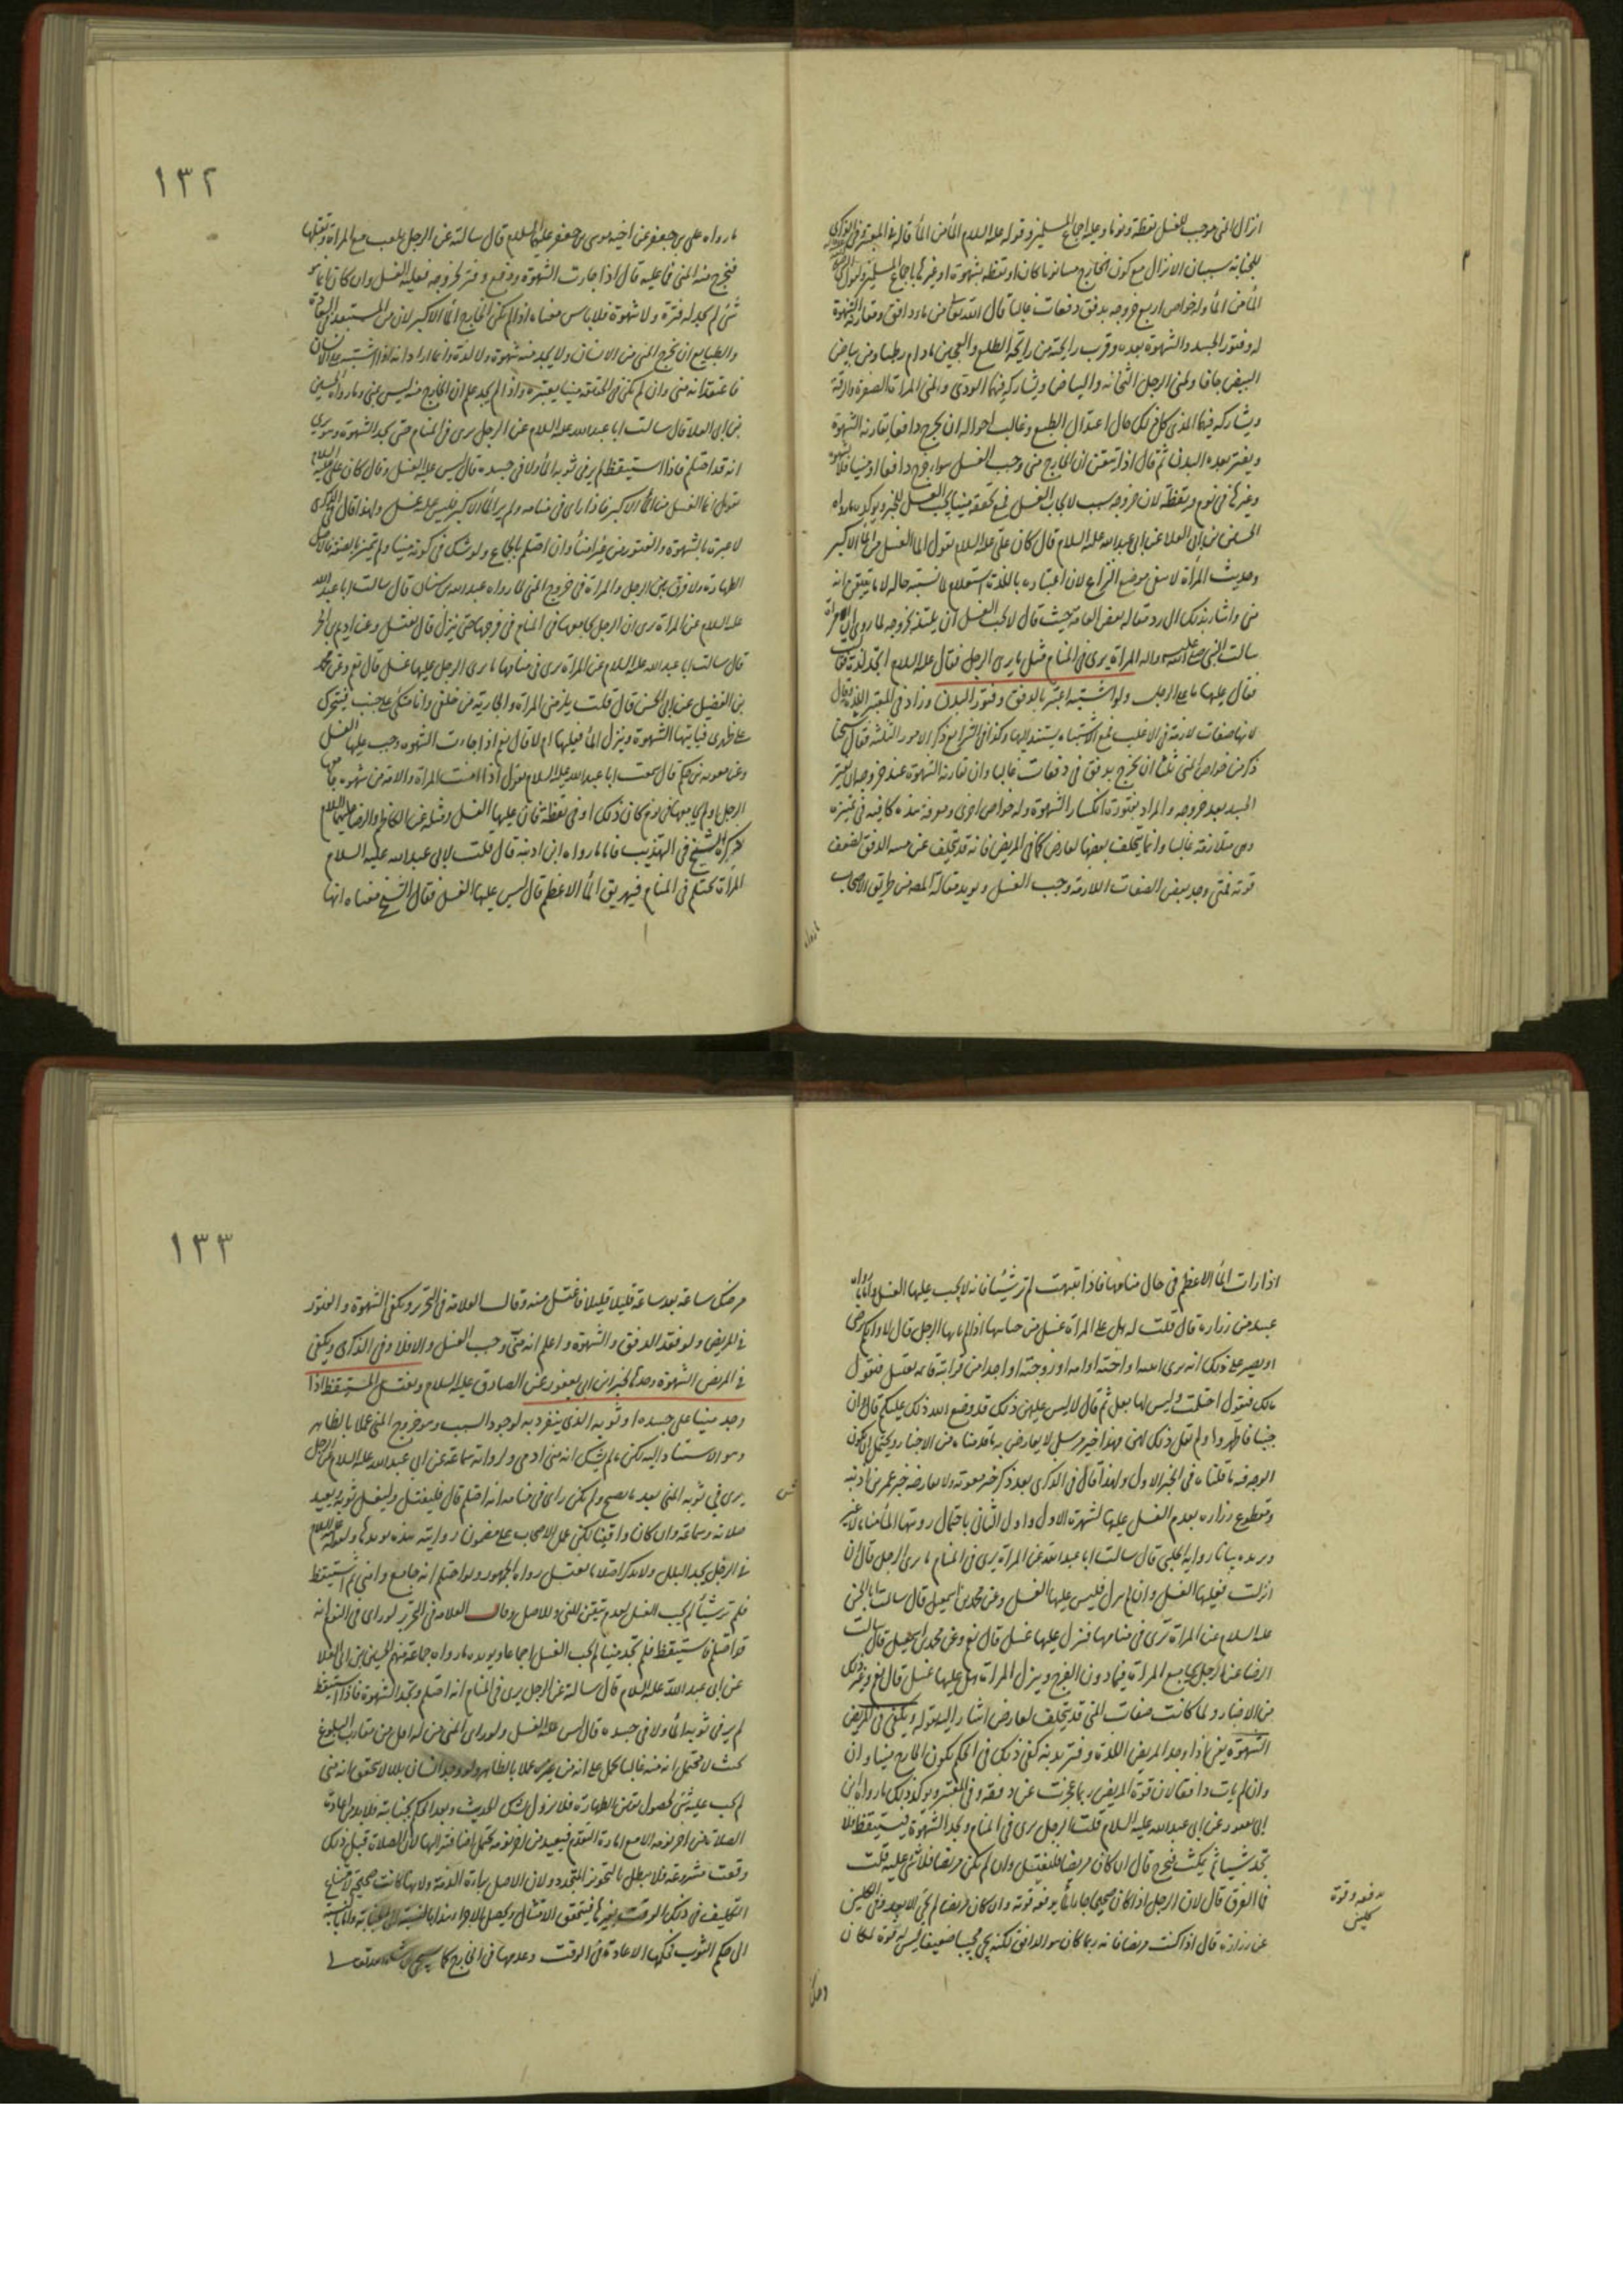 انزال المنى موجب للغسل يقظة ونوما وعليه اجماع المسلمين وقوله عليه السلام الماء من الماء قال فى المعتبر وفى الذكرى
للجنابة سببان الانزال مع كون الخارج منيا نوما كان او يقظة بشهوة او غيرها باجماع المسلمين ولقول النبى
الماء من الماء وله خواص اربع خروجه بدفق دفعات غالبا قال الله تعالى من ماء دافق ومقارنة الشهوة
له وفتور الجسد والشهوة بعده وقرب رايحته من رايحة الطلع والعجين ما دام رطبا ومن بياض
البيض جافا ولمنى الرجل الثخانة والبياض ويشاركه فيهما الودى ولمنى المراة الصفرة والرقة
ويشاركه فيهما المذى كل ذلك حال اعتدال الطبع وغالب احواله ان يخرج دافقا يقارنه الشهوة
ويفتر بعده البدن ثم قال اذا تيقن ان الخارج منى وجب الغسل سواء خرج دافقا او منسابا بشهوة
وغيرها فى نوم ويقظة لان خروجه سبب لايجاب الغسل فمع تحققه منيا يجب الغسل للخبر ويؤكده ما رواه
الحسين بن ابى العلا عن ابى عبدالله عليه السلام قال كان على عليه السلام يقول انما الغسل من الماء الاكبر
وحديث المراة لا ينفى موضع النزاع لان اعتباره باللذة استعلام لما يشتبه حاله لا ما يتيقن انه
منى واشار بذلك الى رد مقالة بعض العامة حيث قال لا يجب الغسل ان لم يلتذ بخروجه لما روى ان امراة
سالت النبى صلى الله عليه واله المراة يرى فى المنام مثل ما يرى الرجل فقال عليه السلام اتجد لذة فقالت نعم
فقال عليها ما على الرجل ولو اشتبه اعتبر بالدفق وفتور البدن وزاد فى المعتبر اللذة وقال
لانها صفات لازمة فى الاغلب فمع الاشتباه يستند اليها وكذا فى الشرايع ذكر الامور الثلثة فقال شيخنا
ذكر من خواص المنى ثلثا ان يخرج بدفق فى دفعات غالبا وان تقارنه الشهوة عند خروجه وان يفتر
الجسد بعد خروجه والمراد بفتوره انكسار الشهوة وله خواص اخرى ومعرفة هذه كافية فى تميزه
وهى متلازمة غالبا وانما يتخلف بعضها لعارض كما فى المريض فانه قد يتخلف عن منيه الدفق لضعف
قوته فمتى وجد بعض الصفات اللازمة وجب الغسل ويؤيد مقالة المصنف من طريق الاصحاب
ما رواه
١٣٢
ما رواه على بن جعفر عن اخيه موسى بن جعفر عليهما السلام قال سالته عن الرجل يلعب مع المراة ويقبلها
فيخرج منه المنى فما عليه قال اذا جاءت الشهوة ودفع وفتر لخروجه فعليه الغسل وان كان انما هو
شئ لم يجد له فترة ولا شهوة فلا باس معناه اذا لم يكن الخارج الماء الاكبر لان من المستبعد فى العادة
والطبايع ان يخرج المنى من الانسان ولا يجد منه شهوة ولا لذة وانما اراد انه اذا اشتبه على الانسان
فاعتقد انه منى وان لم يكن فى الحقيقة منيا يعتبره واذا لم يجد علم ان الخارج منه ليس بمنى وما رواه الحسين
بن ابى العلا قال سالت ابا عبدالله عليه السلام عن الرجل يرى فى المنام حتى يجد الشهوة وهو يرى
انه قد احتلم فاذا استيقظ لم ير فى ثوبه الماء ولا فى جسده قال ليس عليه الغسل وقال كان على عليه السلام
يقول انما الغسل من الماء الاكبر فاذا راى فى منامه ولم ير الماء الاكبر فليس عليه غسل ولهذا قال فى الذكرى
لا عبرة بالشهوة والفتور من غير امناء وان احتلم بالجماع ولو شك فى كونه منيا ولم يتميز بالصفة فالاصل
الطهارة ولا فرق بين الرجل والمراة فى خروج المنى لما رواه عبدالله بن سنان قال سالت ابا عبدالله
عليه السلام عن المراة ترى ان الرجل يجامعها فى المنام فى فرجها حتى ينزل قال تغتسل وعن اديم بن الحر
قال سالت ابا عبدالله عليه السلام عن المراة يرى فى منامها ما يرى الرجل عليها غسل قال نعم وعن محمد
بن الفضيل عن ابى الحسن قال قلت يلزمنى المراة والجارية من خلفى وانا متكئ على جنب فيتحرك
على ظهرى فياتيها الشهوة وينزل الماء فعليها ام لا قال نعم اذا جاءت الشهوة وجب عليها الغسل
وعن معوية بن حكيم قال سمعت ابا عبدالله عليه السلام يقول اذا امنت المراة والامة من شهوة جامعها
الرجل او لم يجامعها فى نوم كان ذلك او فى يقظة فان عليها الغسل ومثله عن الكاظم والرضا عليهما السلام
ذكره الشيخ فى التهذيب فاما ما رواه ابن اذينة قال قلت لابى عبدالله عليه السلام
المراة تحتلم فى المنام فيهريق الماء الاعظم قال ليس عليها الغسل فقال الشيخ معناه انها
اذا رات الماء الاعظم فى حال منامها فاذا انتبهت لم تر شيئا فانه لا يجب عليها الغسل واما ما رواه
عبيد بن زرارة قال قلت له هل على المراة غسل من جنابتها اذا لم ياتها الرجل قال لا وايكم يرضى
او يصبر على ذلك ان يرى ابنته او اخته او امه او زوجته او احدا من قرابته قائمة تغتسل فيقول
مالك فتقول احتلمت وليس لها بعل ثم قال لا ليس عليهن ذلك قد وضع الله ذلك عليكم قال وان كنتم
جنبا فاطهروا ولم يقل ذلك لهن فهذا خبر مرسل لا يعارض به ما قدمناه من الاخبار ويحتمل ان يكون
الوجه فيه ما قلناه فى الخبر الاول ولهذا قال فى الذكرى بعد ذكر خبر معوية ولا يعارضه خبر عمر بن اذينة
ومقطوع زرارة بعدم الغسل عليها لشهرة الاول واول الثانى باحتمال رويتها الماء مناما لا غير
ويريده بيانا رواية الحلبى قال سالت ابا عبدالله عن المراة يرى فى المنام ما يرى الرجل قال ان
انزلت فعليها الغسل وان لم ينزل فليس عليها الغسل وعن محمد بن اسمعيل قال سالت ابا الحسن
عليه السلام عن المراة ترى فى منامها فتنزل عليها غسل قال نعم وعن محمد بن اسمعيل قال سالت
الرضا عن الرجل يجامع المراة فيما دون الفرج وينزل المراة هل عليها غسل قال نعم وغير ذلك
من الاخبار ولما كانت صفات المنى قد يتخلف لعارض اشار اليه بقوله ويكفى فى المريض
الشهوة يعنى اذا وجد المريض اللذة وفتر بدنه كفى ذلك فى الحكم بكون الخارج منيا وان
وان لم يات دافقا لان قوة المريض ربما عجزت عن دفقه وفى المعتبر ويؤكد ذلك ما رواه ابن
ابى يعفور عن ابى عبدالله عليه السلام قلت الرجل يرى فى المنام ويجد الشهوة فيستيقظ فلا
يجد شيئا ثم يمكث فيخرج قال ان كان مريضا فليغتسل وان لم يكن مريضا فلا شئ عليه قلت
فما الفرق قال لان الرجل اذا كان صحيحا جاء الماء بدفعة قوية وان كان مريضا لم يجئ الا بعد وفى الكلينى
عن زرارة قال اذا كنت مريضا فانه ربما كان هو الدافق لكنه يجئ مجيئا ضعيفا ليس له قوة لمكان
بدفعة وقوة
كلينى
١٣٣
مرضك ساعة بعد ساعة قليلا قليلا فاغتسل منه وقال العلامة فى التحرير ويكفى الشهوة والفتور
فى المريض ولو فقد الدفق والشهوة واعلم انه منى وجب الغسل والا فلا وفى الذكرى ويكفى
فى المريض الشهوة وحدها لخبر ابن ابى يعفور عن الصادق عليه السلام ويغتسل المستيقظ اذا
وجد منيا على جسده او ثوبه الذى ينفرد به لوجود السبب وهو خروج المنى عملا بالظاهر
وهو الاستناد اليه لكن ما لم يشك انه منى ادمى ولرواية سماعة عن ابى عبدالله عليه السلام فى الرجل
يرى فى ثوبه المنى بعد ما يصبح ولم يكن راى فى منامه انه احتلم قال فليغتسل وليغسل ثوبه ويعيد
صلاته وسماعة وان كان واقفيا لكن عمل الاصحاب على مضمون روايته هذه يؤيدها ولقوله عليه السلام
فى الرجل يجد البلل ولا يذكر احتلاما يغتسل رواه الجمهور ولو احتلم انه جامع وامنى ثم استيقظ
فلم ير شيئا لم يجب الغسل لعدم تيقن المنى وللاصل وقال العلامة فى التحرير لو راى فى النوم انه
قد احتلم فاستيقظ فلم يجد منيا لم يجب الغسل اجماعا ويؤيده ما رواه جماعة منهم الحسين بن ابى العلا
عن ابى عبدالله عليه السلام قال سالته عن الرجل يرى فى المنام انه احتلم ويجد الشهوة فاذا استيقظ
لم ير فى ثوبه الماء ولا فى جسده قال ليس عليه الغسل ولو راى المنى من له اهل من مقارب البلوغ
بحيث لا يحتمل انه منه غالبا يحمل على انه من غيره عملا بالظاهر ولو وجد انسان بللا لا يتحقق انه منى
لم يجب عليه شئ لحصول يقين الطهارة فلا يزول بالشك للحديث وبعد الحكم بجنابته فلا بد من اعادة
الصلاة من اخر نومه الا مع امارة التقدم فيعيد من اخر نومة يحتمل اضافته اليها لان الصلاة قبل ذلك
وقعت مشروعة فلا يبطل بالتجويز المتجدد ولان الاصل براءة الذمة ولانها كانت صحيحة لا
التكليف فى ذلك الوقت بغيرها فيتحقق الامتثال ويحصل الاجزاء هذا بالنسبة الى الجنابة واما بالنسبة
الى حكم الثوب فحكمها الاعادة فى الوقت وعدمها فى الخارج كما سيجئ ان شاء الله تعالى